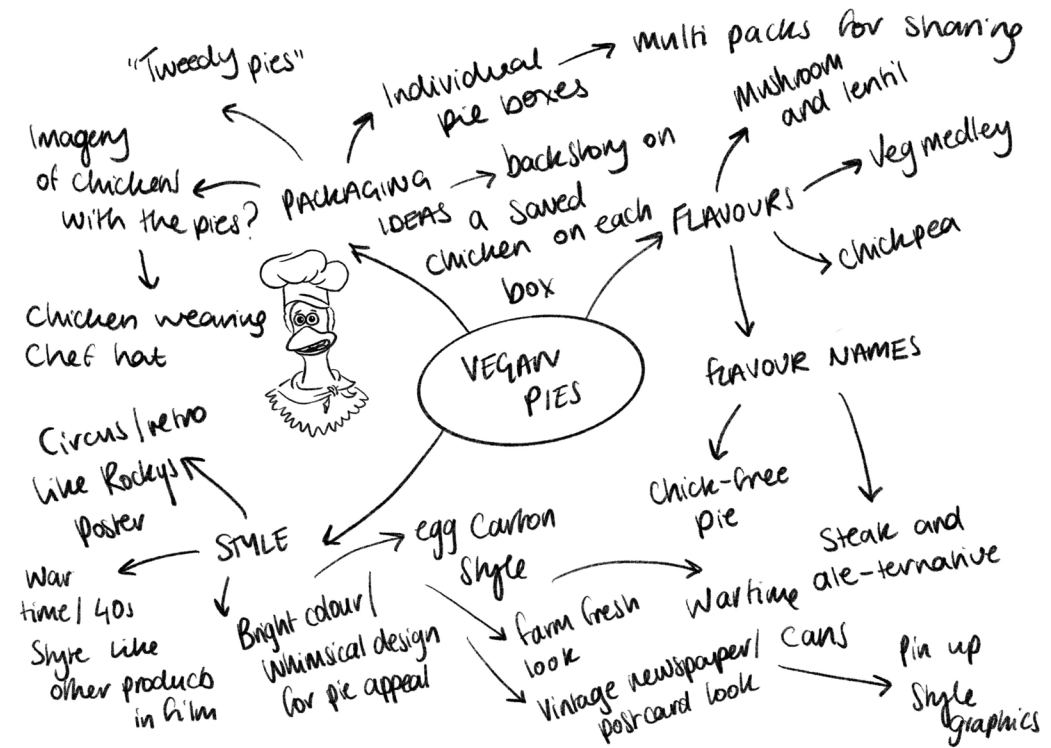 "Tweedy pies"
Individual
pie boxes
multi packs for sharing
Imagery
of chickens
with the pies?
Chicken wearing
Chef hat
PACKAGING
IDEAS
backstory on
a saved
chicken on each
box
FLAVOURS
Mushroom
and lentil
Veg medley
chickpea
FLAVOUR NAMES
Chick-free
pie
Steak and
ale-ternative
VEGAN
PIES
STYLE
Circus/retro
like Rockys
poster
War
time/40s
Style like
other products
in film
Bright colour/
whimsical design
for pie appeal
egg Carton
style
farm fresh
look
Wartime
cans
Vintage newspaper/
postcard look
Pin up
Style
graphics